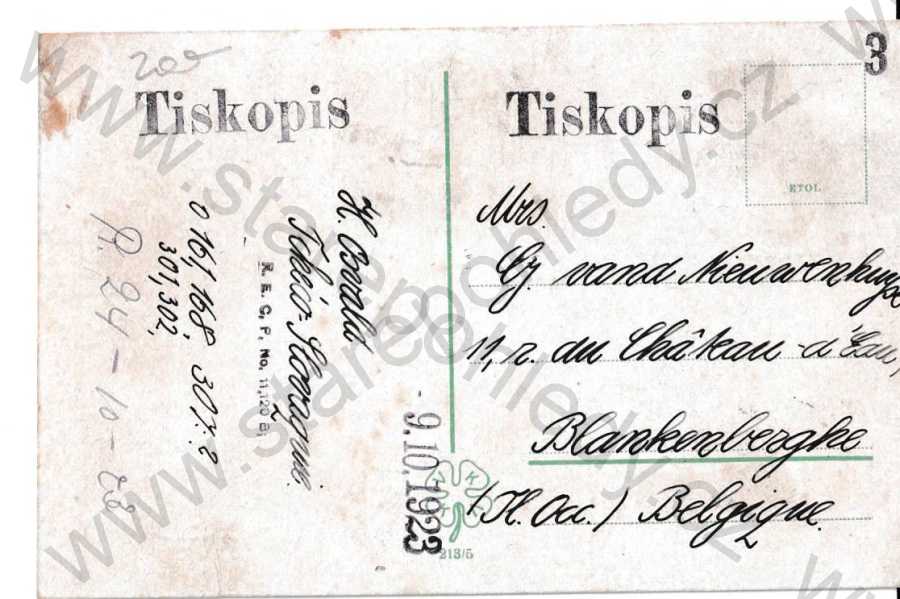 200
Tiskopis
Tiskopis
3
ETOL
Mrs.
Cy. vand Nieuwenhuyse
11, r. du Château-d'Eau,
Blankenberghe
(Fl. Occ.) Belgique.
Tchéco-Slovaquie.
R. E. C. P. No. 11,120 B;
0 161, 168, 307.2
301, 302,
R. 24-10-23
- 9.10.1923
213/5
www.starepohledy.cz